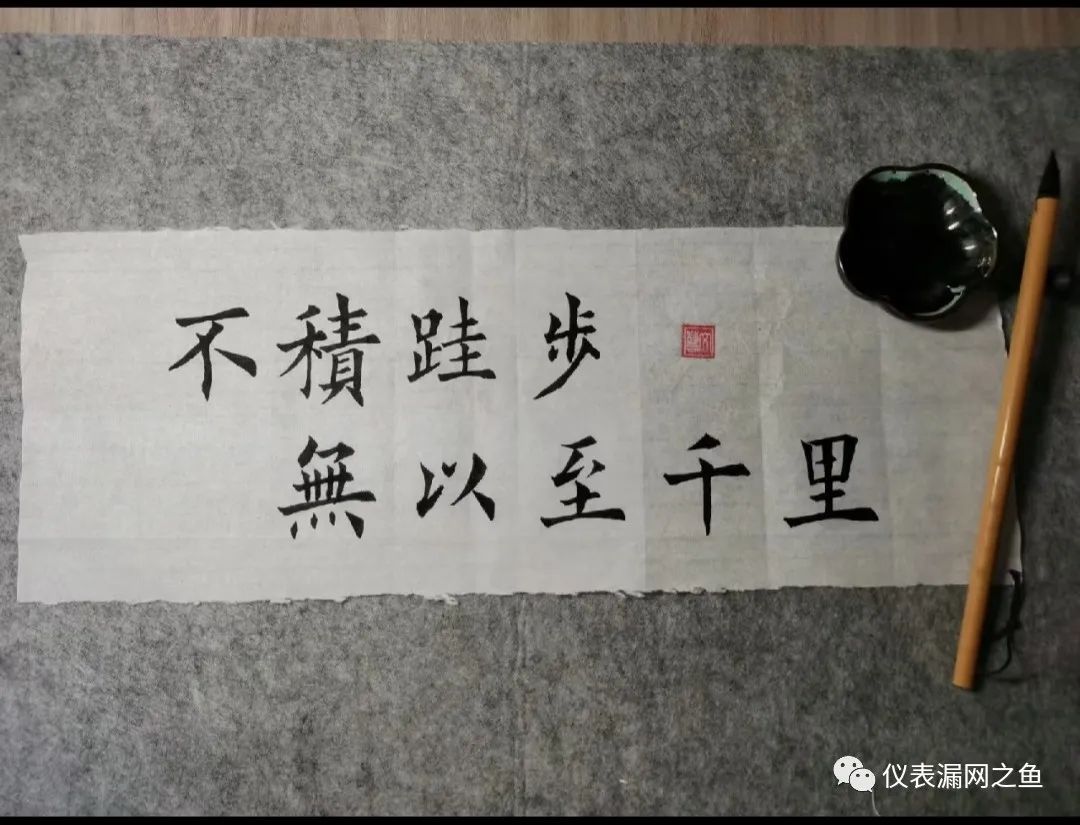 不積跬步
無以至千里
仪表漏网之鱼